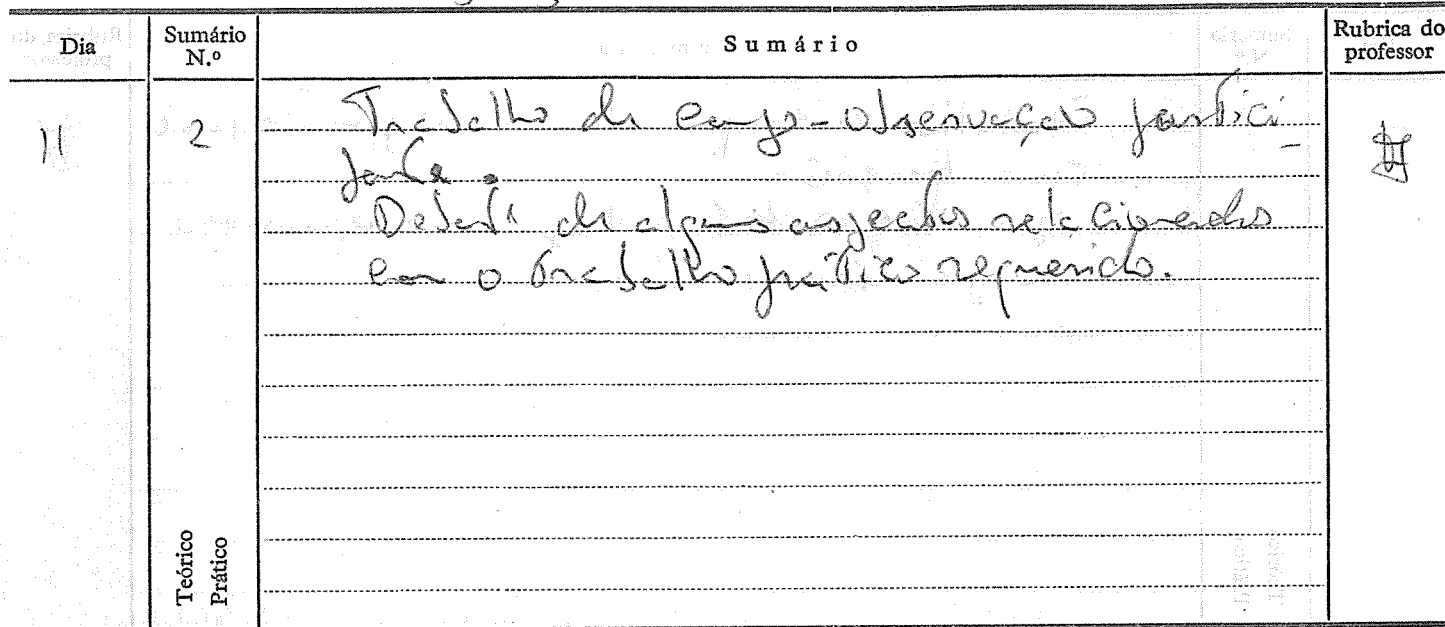 Dia
Sumário N.º
Sumário
Rubrica do professor
11
2
Trabalho de campo - observação partici-
pante.
Debate de alguns aspectos relacionados
com o trabalho prático requerido.
Teórico
Prático